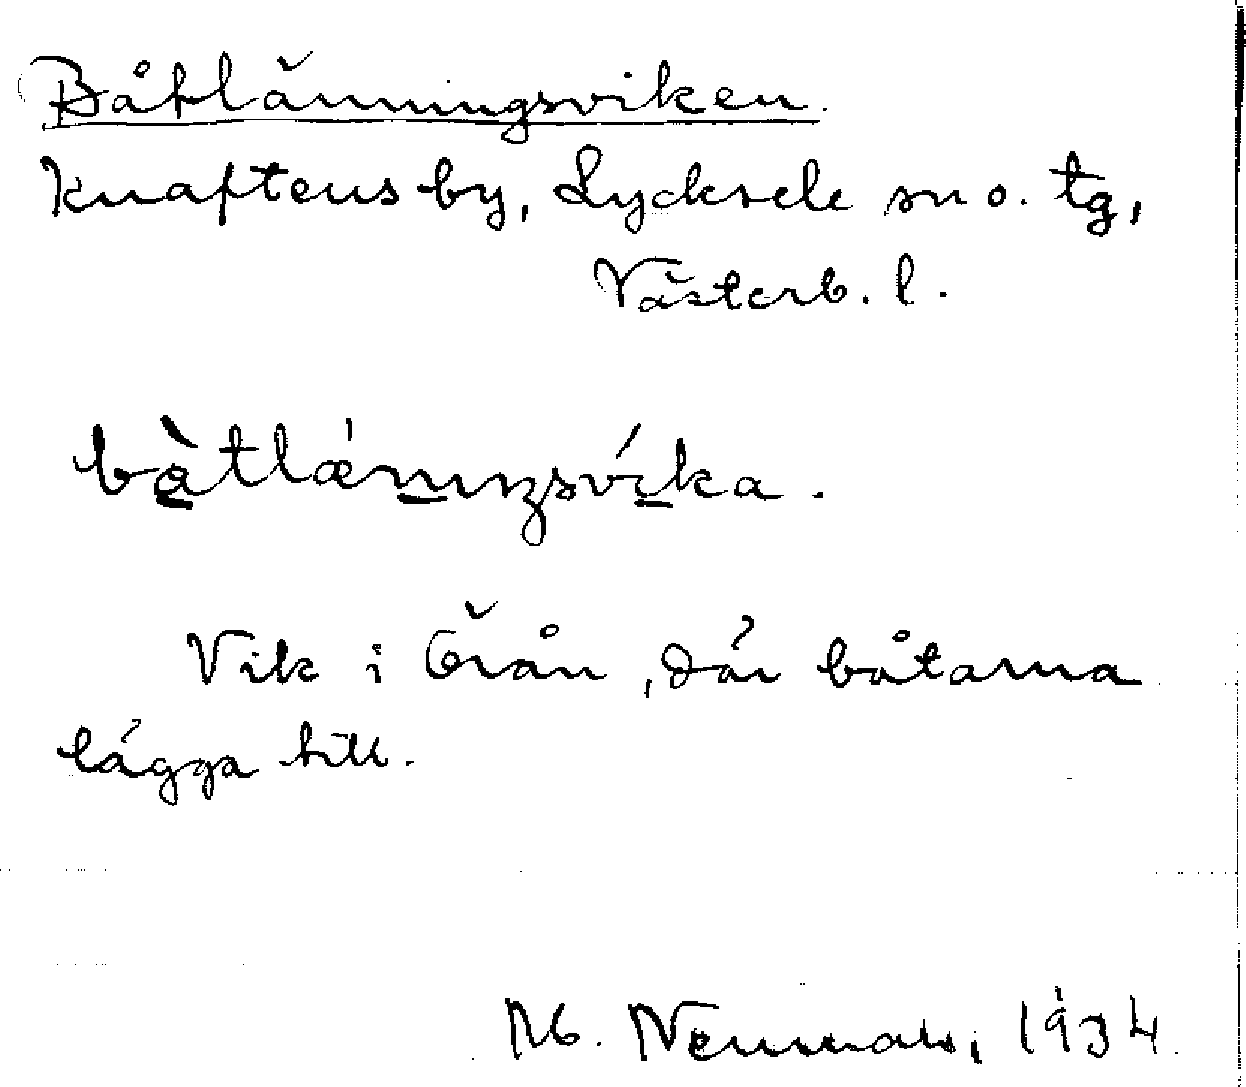 Båtlänningsviken.
Knaftens by, Lycksele sn o. tg,
Västerb. l.
bàtlǽnıŋsvíka.
Vik i Örån, där båtarna
lägga till.
M. 1934.